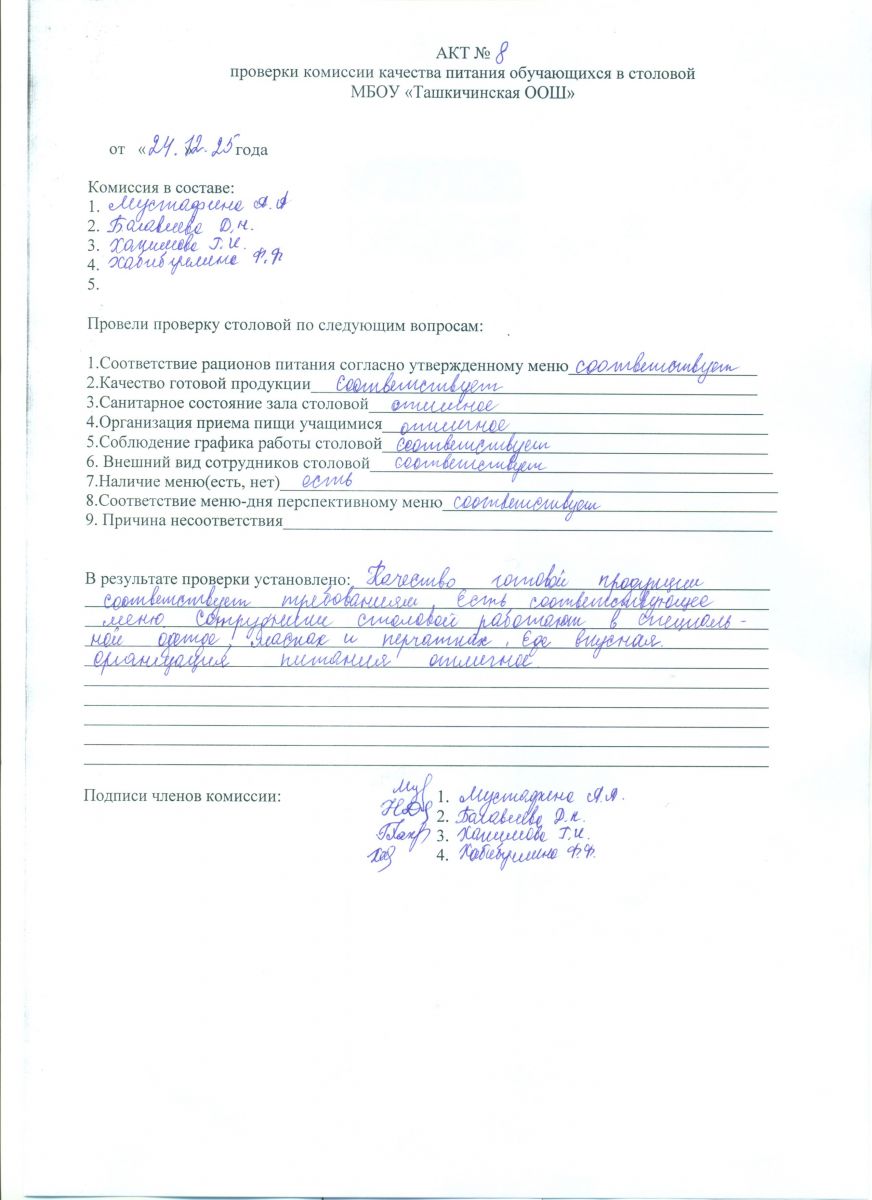 АКТ № 8
проверки комиссии качества питания обучающихся в столовой
МБОУ «Ташкичинская ООШ»
от « 24. 12. 25 года
Комиссия в составе:
1. Мустафина А.А
2. Багавиева Д.Н.
3. Хакимова Г.И.
4. Хабибуллина Ф.Ф
5.
Провели проверку столовой по следующим вопросам:
1.Соответствие рационов питания согласно утвержденному меню соответствует
2.Качество готовой продукции соответствует
3.Санитарное состояние зала столовой отличное
4.Организация приема пищи учащимися отличное
5.Соблюдение графика работы столовой соответствует
6. Внешний вид сотрудников столовой соответствует
7.Наличие меню(есть, нет) есть
8.Соответствие меню-дня перспективному меню соответствует
9. Причина несоответствия
В результате проверки установлено: Качество готовой продукции
соответствует требованиям. Есть соответствующее
меню Сотрудники столовой работают в специаль-
ной одежде, масках и перчатках. Еда вкусная.
Организация питания отличное.
Подписи членов комиссии:
1. Мустафина А.А.
2. Багавиева Д.Н.
3. Хакимова Г.И.
4. Хабибуллина Ф.Ф.